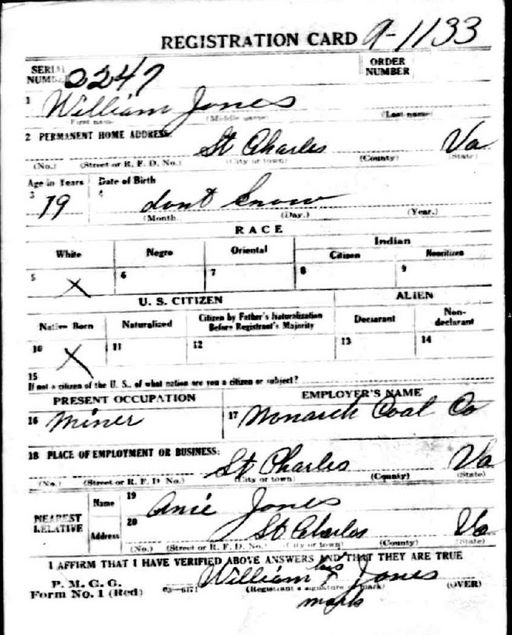 REGISTRATION CARD A-1133
SERIAL NUMBER 2247 ORDER NUMBER
1 William Jones
First name (Middle name) (Last name)
2 PERMANENT HOME ADDRESS:
St Charles Va
(No.) (Street or R. F. D. No.) (City or town) (County) (State)
Age in Years Date of Birth
3 19 4 dont know
(Month (Day.) (Year.)
RACE
White Negro Oriental Indian
Citizen Noncitizen
5 X 6 7 8 9
U. S. CITIZEN ALIEN
Native Born Naturalized Citizen by Father's Naturalization Before Registrant's Majority Declarant Non-declarant
10 X 11 12 13 14
15
If not a citizen of the U. S., of what nation are you a citizen or subject?
PRESENT OCCUPATION EMPLOYER'S NAME
16 miner 17 Monarch Coal Co
18 PLACE OF EMPLOYMENT OR BUSINESS:
St Charles Va
(No.) (Street or R. F. D. No.) (City or town) (County) (State)
NEAREST RELATIVE
Name 19 Jones
Address 20 St Charles Va
(No.) (Street or R. F. D. No.) (City or town) (County) (State)
I AFFIRM THAT I HAVE VERIFIED ABOVE ANSWERS AND THAT THEY ARE TRUE
William his X Jones
P. M. G. G.
Form No. 1 (Red) (Registrant's signature or mark) (OVER)
mark